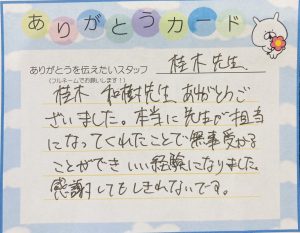 ありがとうカード
ありがとうを伝えたいスタッフ 桂木先生
(フルネームでお願いします!)
桂木 和樹先生 ありがとうご
ざいました。本当に先生が担当
になってくれたことで無事受かる
ことができ いい経験になりました。
感謝してもしきれないです。